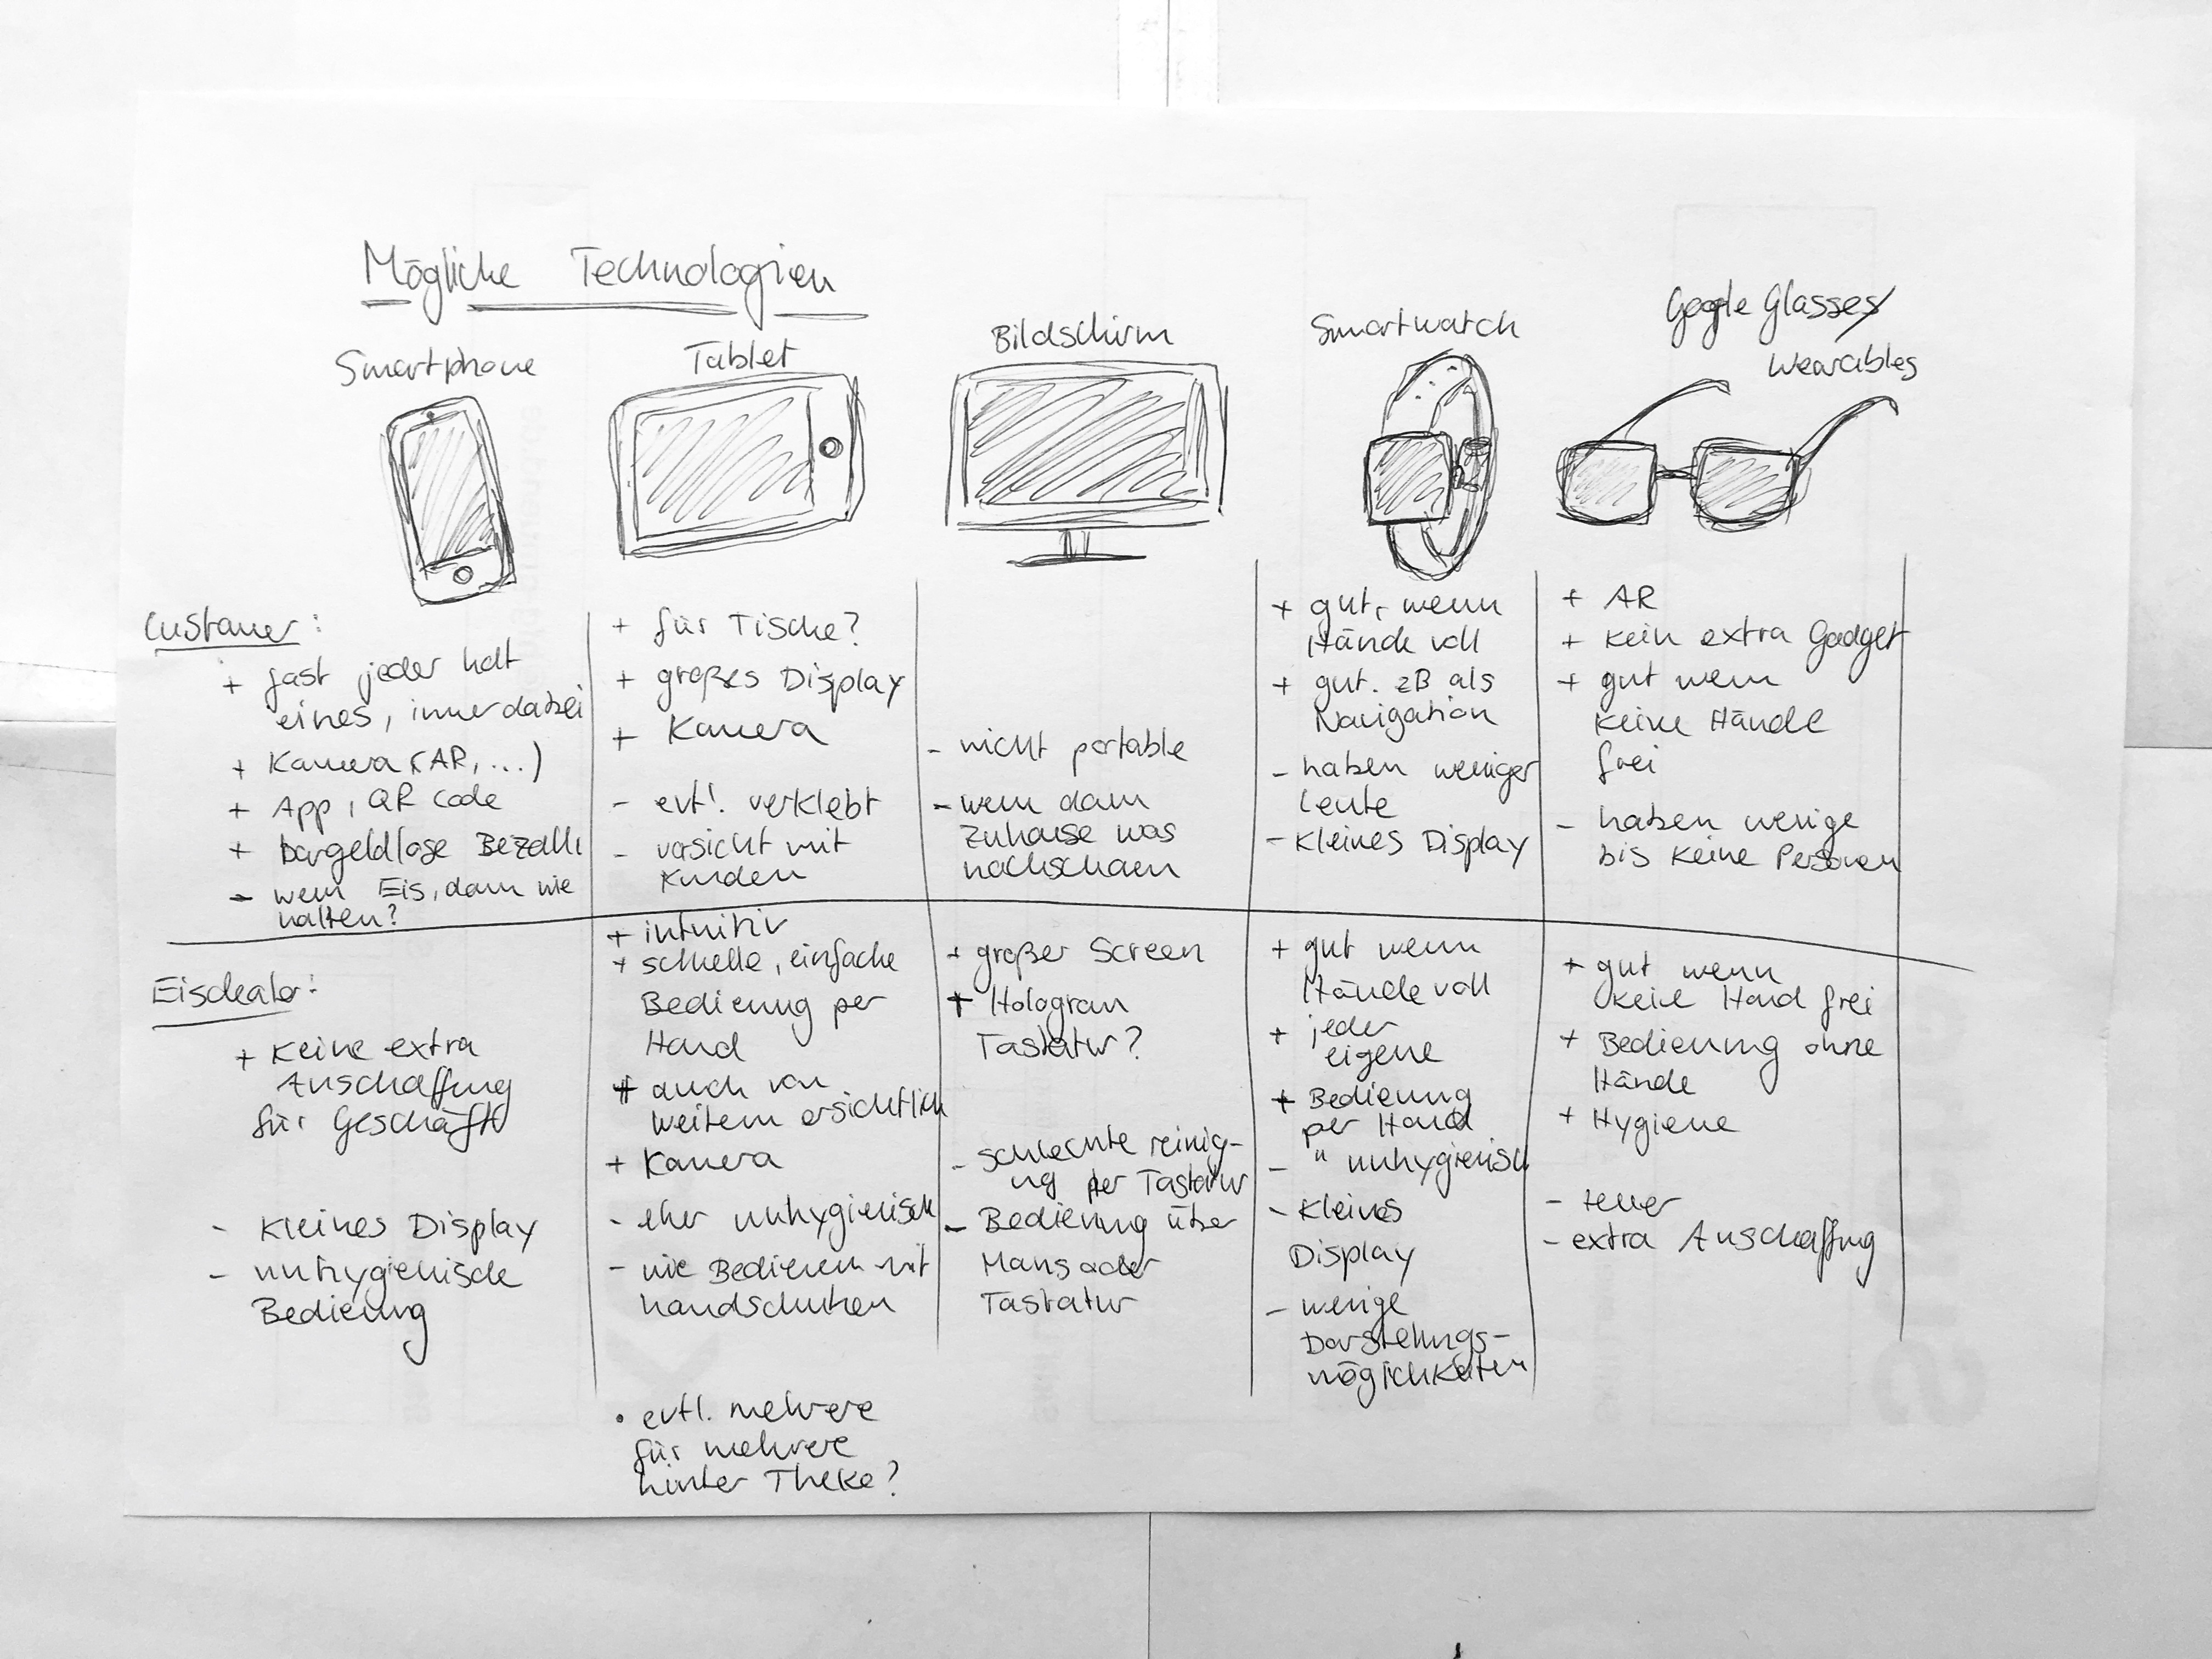 Mögliche Technologien
Smartphone
Tablet
Bildschirm
Smartwatch
Google Glasses/
Wearables
Customer:
+ fast jeder hat
eines, immer dabei
+ Kamera (AR, ...)
+ App, QR Code
+ bargeldlose Bezahl
- wenn Eis, dann wie
halten?
+ für Tische?
+ großes Display
+ Kamera
- evtl. verklebt
- vorsicht mit
Kunden
- nicht portable
- wenn dann
zuhause was
nachschauen
+ gut, wenn
Hände voll
+ gut. zB als
Navigation
- haben weniger
Leute
- kleines Display
+ AR
+ kein extra Gadget
+ gut wenn
keine Hände
frei
- haben wenige
bis keine Personen
Eisdealer:
+ keine extra
Anschaffung
für Geschäft
- kleines Display
- unhygienische
Bedienung
+ intuitiv
+ schnelle, einfache
Bedienung per
Hand
+ auch von
weitem ersichtlich
+ Kamera
- eher unhygienisch
- wie Bedienen mit
Handschuhen
• evtl. mehrere
für mehrere
hinter Theke?
+ großer Screen
+ Hologram
Tastatur?
- schlechte reinig-
ung der Tastatur
- Bedienung über
Maus oder
Tastatur
+ gut wenn
Hände voll
+ jeder
eigene
+ Bedienung
per Hand
- " unhygienisch
- kleines
Display
- wenige
Darstellungs-
möglichkeiten
+ gut wenn
keine Hand frei
+ Bedienung ohne
Hände
+ Hygiene
- teuer
- extra Anschaffung